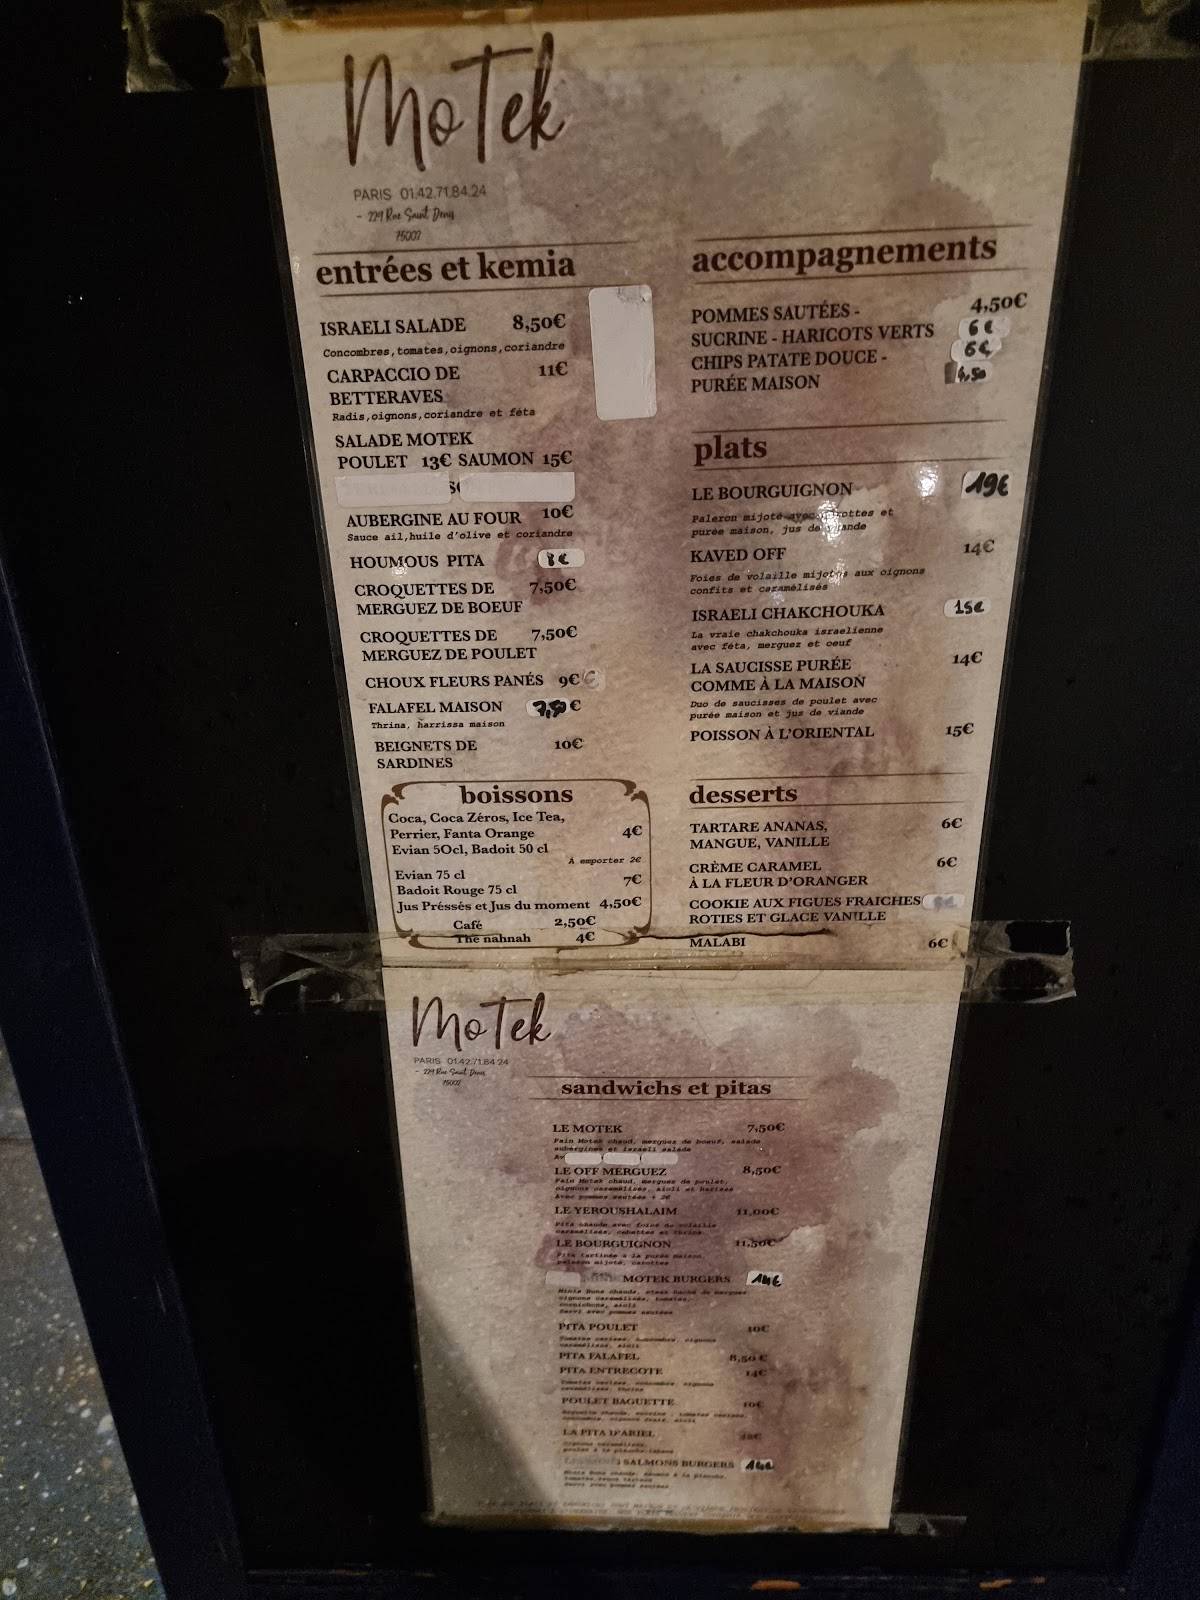 MoTek
PARIS 01.42.71.84.24
- 229 Rue Saint Denis
75002
entrées et kemia
ISRAELI SALADE 8,50€
Concombres,tomates,oignons,coriandre
CARPACCIO DE 11€
BETTERAVES
Radis,oignons,coriandre et féta
SALADE MOTEK
POULET 13€ SAUMON 15€
AUBERGINE AU FOUR 10€
Sauce ail,huile d'olive et coriandre
HOUMOUS PITA 8€
CROQUETTES DE 7,50€
MERGUEZ DE BOEUF
CROQUETTES DE 7,50€
MERGUEZ DE POULET
CHOUX FLEURS PANÉS 9€
FALAFEL MAISON 7,50 €
Thrina, harrissa maison
BEIGNETS DE 10€
SARDINES
boissons
Coca, Coca Zéros, Ice Tea,
Perrier, Fanta Orange 4€
Evian 50cl, Badoit 50 cl
A emporter 2€
Evian 75 cl 7€
Badoit Rouge 75 cl
Jus Préssés et Jus du moment 4,50€
Café 2,50€
Thé nahnah 4€
accompagnements
POMMES SAUTÉES - 4,50€
SUCRINE - HARICOTS VERTS 6€
CHIPS PATATE DOUCE - 6€
PURÉE MAISON 4,50
plats
LE BOURGUIGNON 19€
Paleron mijoté avec carottes et
purée maison, jus de viande
KAVED OFF 14€
Foies de volaille mijotés aux oignons
confits et caramélisés
ISRAELI CHAKCHOUKA 15€
La vraie chakchouka israelienne
avec féta, merguez et oeuf
LA SAUCISSE PURÉE 14€
COMME À LA MAISON
Duo de saucisses de poulet avec
purée maison et jus de viande
POISSON À L'ORIENTAL 15€
desserts
TARTARE ANANAS, 6€
MANGUE, VANILLE
CRÈME CARAMEL 6€
À LA FLEUR D'ORANGER
COOKIE AUX FIGUES FRAICHES
ROTIES ET GLACE VANILLE
MALABI 6€
MoTek
PARIS 01.42.71.84.24
- 229 Rue Saint Denis
75002
sandwichs et pitas
LE MOTEK 7,50€
Pain Motek chaud, merguez de boeuf, salade
aubergines et israeli salade
LE OFF MERGUEZ 8,50€
Pain Motek chaud, merguez de poulet,
oignons caramélisés, aioli et harissa
Avec pommes sautées + 2€
LE YEROUSHALAIM 11,00€
Pita chaude avec foies de volaille
LE BOURGUIGNON 11,50€
Pita tartinée à la purée maison,
paleron mijoté, carottes
MOTEK BURGERS 14€
Minis Buns chauds, steak haché de merguez
oignons caramélisés, tomates,
cornichons, aioli
Servi avec pommes sautées
PITA POULET 10€
Tomates cerises, concombre, oignons
caramélisés, aioli
PITA FALAFEL 8,50 €
PITA ENTRECOTE 14€
Tomates cerises, concombre, oignons
POULET BAGUETTE 10€
LA PITA D'ARIEL
SALMONS BURGERS 14€